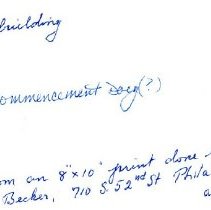 Building
ommencement (?)
om an 8"x10" print done
Becker, 710 S. 52nd St Phila
a